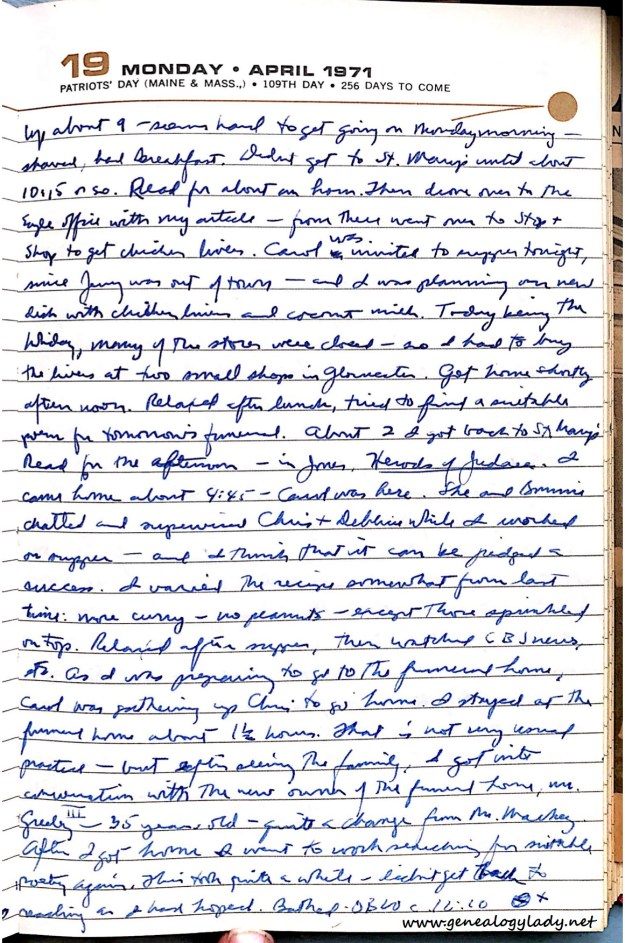 19 MONDAY • APRIL 1971
PATRIOTS' DAY (MAINE & MASS.,) • 109TH DAY • 256 DAYS TO COME
Up about 9 – seems hard to get going on Monday morning –
shaved, had breakfast. Didn't get to St. Mary's until about
10:15 or so. Read for about an hour. Then drove over to the
office with my article – from there went over to Stop +
Shop to get chicken livers. Carol was invited to supper tonight,
since Jerry was out of town – and I was planning our new
dish with chicken livers and coconut milk. Today being the
holiday, many of the stores were closed – so I had to buy
the livers at two small shops in Gloucester. Got home shortly
after noon. Relaxed after lunch, tried to find a suitable
poem for tomorrow's funeral. About 2 I got back to St Mary's
Read for the afternoon – in Jones, Herods of Judaea. I
came home about 4:45 – Carol was here. She and Bonnie
chatted and supervised Chris + Debbie while I worked
on supper – and I think that it can be judged a
success. I varied the recipe somewhat from last
time: more curry – no peanuts – except those sprinkled
on top. Relaxed after supper, then watched CBS news,
etc. As I was preparing to go to the funeral home,
Carol was gathering up Chris to go home. I stayed at the
funeral home about 1½ hours. That is not my usual
practice – but after seeing the family, I got into
conversation with the new owner of the funeral home, Mr.
Greely III – 35 years old – quite a change from Mr. Mackey.
After I got home I went to work searching for suitable
poetry again. This took quite a while – didn't get back to
reading as I had hoped. Bathed.
www.genealogylady.net